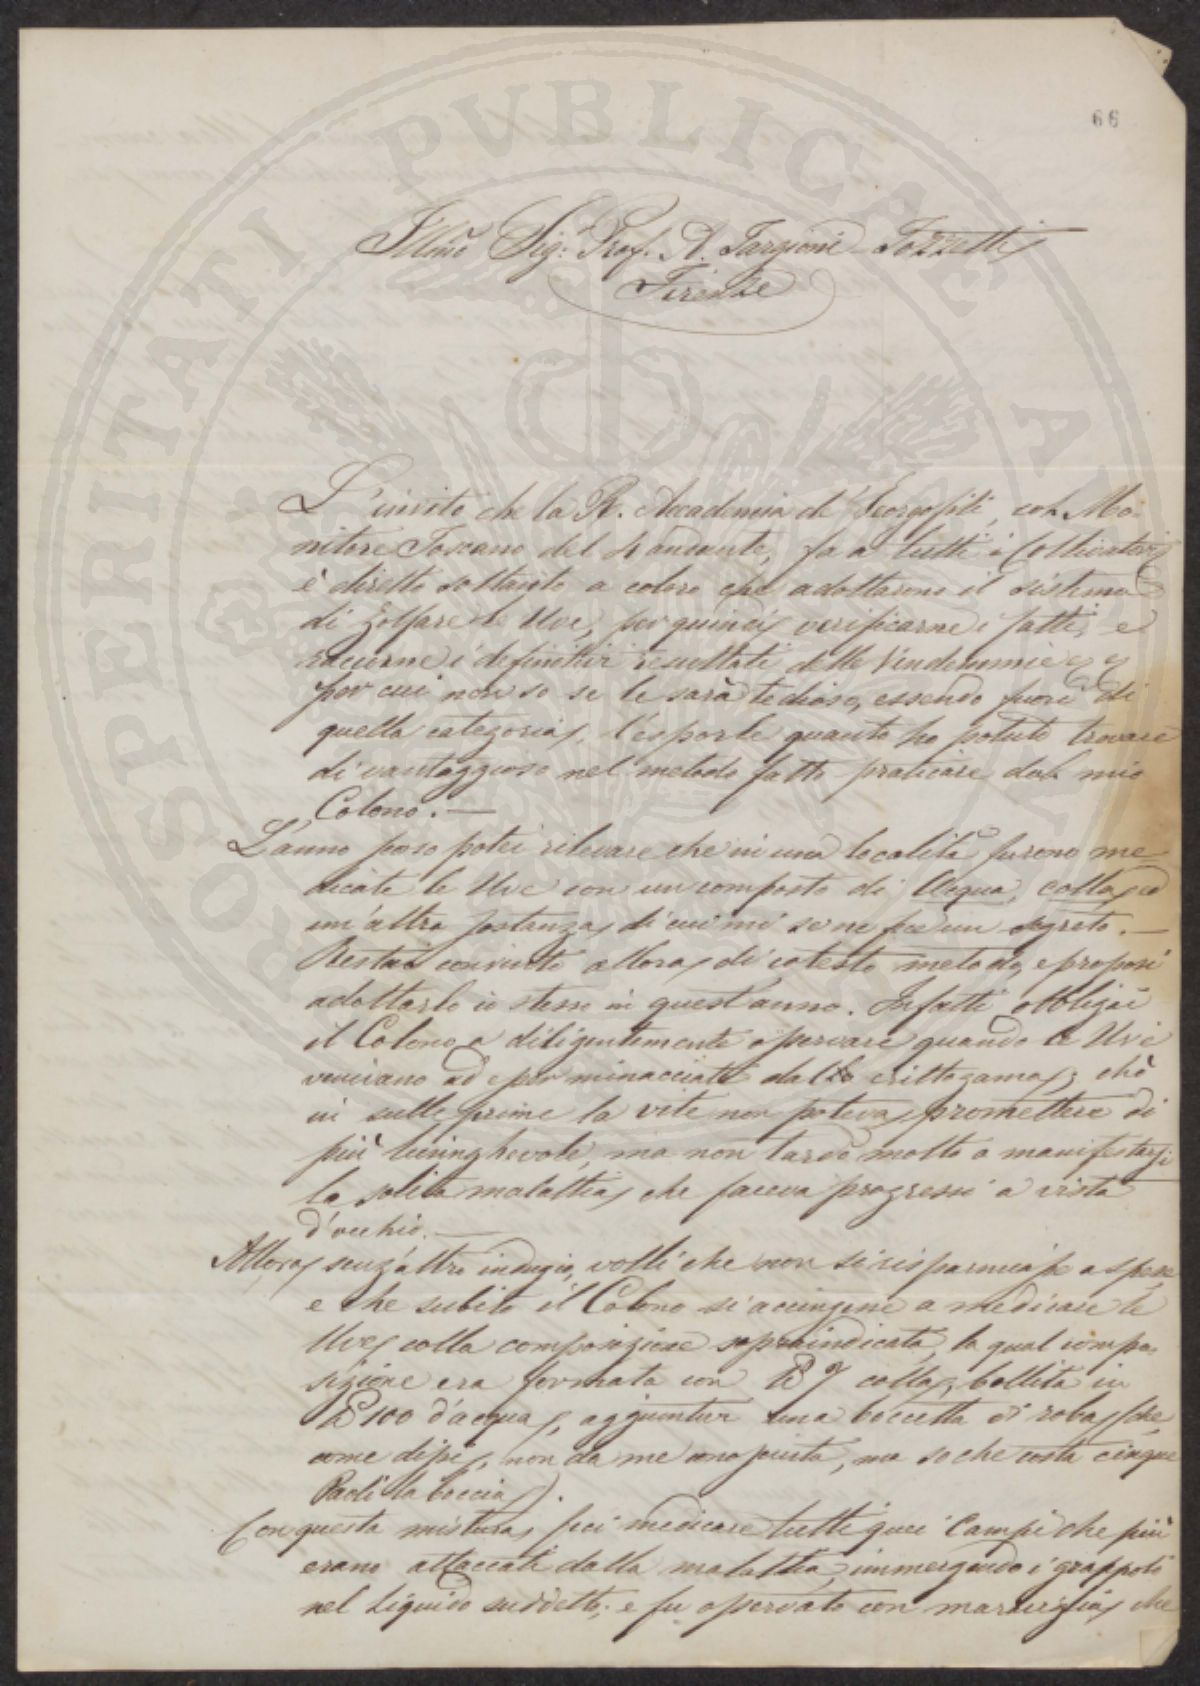 66
Illmo Sig: Prof. A. Targioni-Tozzetti
Firenze
L'invito che la R. Accademia de' Georgofili, col Mo-
nitore Toscano del 4 andante, fa a tutti i Coltivatori
è diretto soltanto a coloro che adottarono il sistema
di Zolfare le Uve, per quindi verificarne i fatti, e
racurne i definitivi resultati delle Vindemmie
per cui non so se le sarà tedioso, essendo fuori di
quella categoria, l'esporle quanto ho potuto trovare
di vantaggioso nel metodo fatto praticare dal mio
Colono. —
L'anno passo potei rilevare che in una località furono me-
dicate le Uve con un composto di Acqua, colla, ed
un'altra sostanza, di cui mi se ne fece un segreto. —
Restai convinto allora di cotesto metodo, e proposi
adottarlo io stesso in quest'anno. Infatti obbligai
il Colono a diligentemente osservare quando le Uve
venivano ad esser minacciate dalla crittogama, chè
in sulle prime la vite non poteva promettere di
più lusinghevole, ma non tardò molto a manifestarsi
la solita malattia, che faceva progressi a vista
d'occhio. —
Allora, senz'altro indugio, volli che non si risparmiasse a spese
e che subito il Colono si accingesse a medicare le
Uve colla composizione sopraindicata, la qual compo-
sizione era formata con colla, bollita in
100 d'acqua, aggiuntavi una boccetta di roba (che
come dissi, non da me conosciuta, ma so che costa cinque
Paoli la boccia).
Con questa mistura, feci medicare tutti quei Campi che più
erano attaccati dalla malattia, immergendo i grappoli
nel liquido suddetto; e fu osservato con maraviglia, che
PROSPERITATI PVBLICAE AV